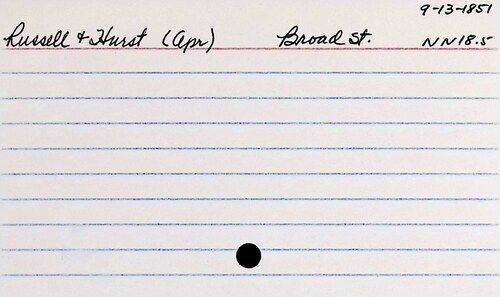 9-13-1851
Russell & Hurst (Apr) Broad St. NN18.5